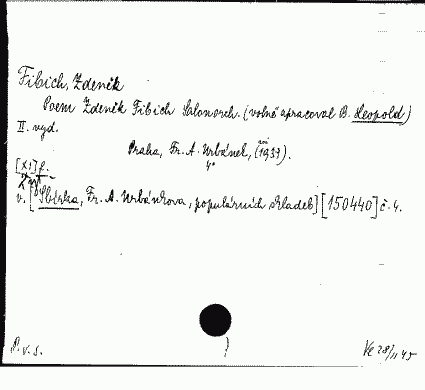 Fibich, Zdeněk
Poem Zdeněk Fibich Salonorch. (volně upracoval B. Leopold)
II. vyd.
Praha, Fr. A. Urbánek, (1937).
4°
[XI] f.
v. [Sbírka, Fr. A. Urbánkova, populárních skladeb] [150440] č. 4.
P. v. s.
Ve 28/11 45